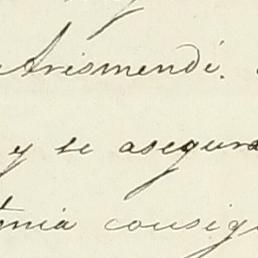 Arismendi.
y se asegura
tenia consig